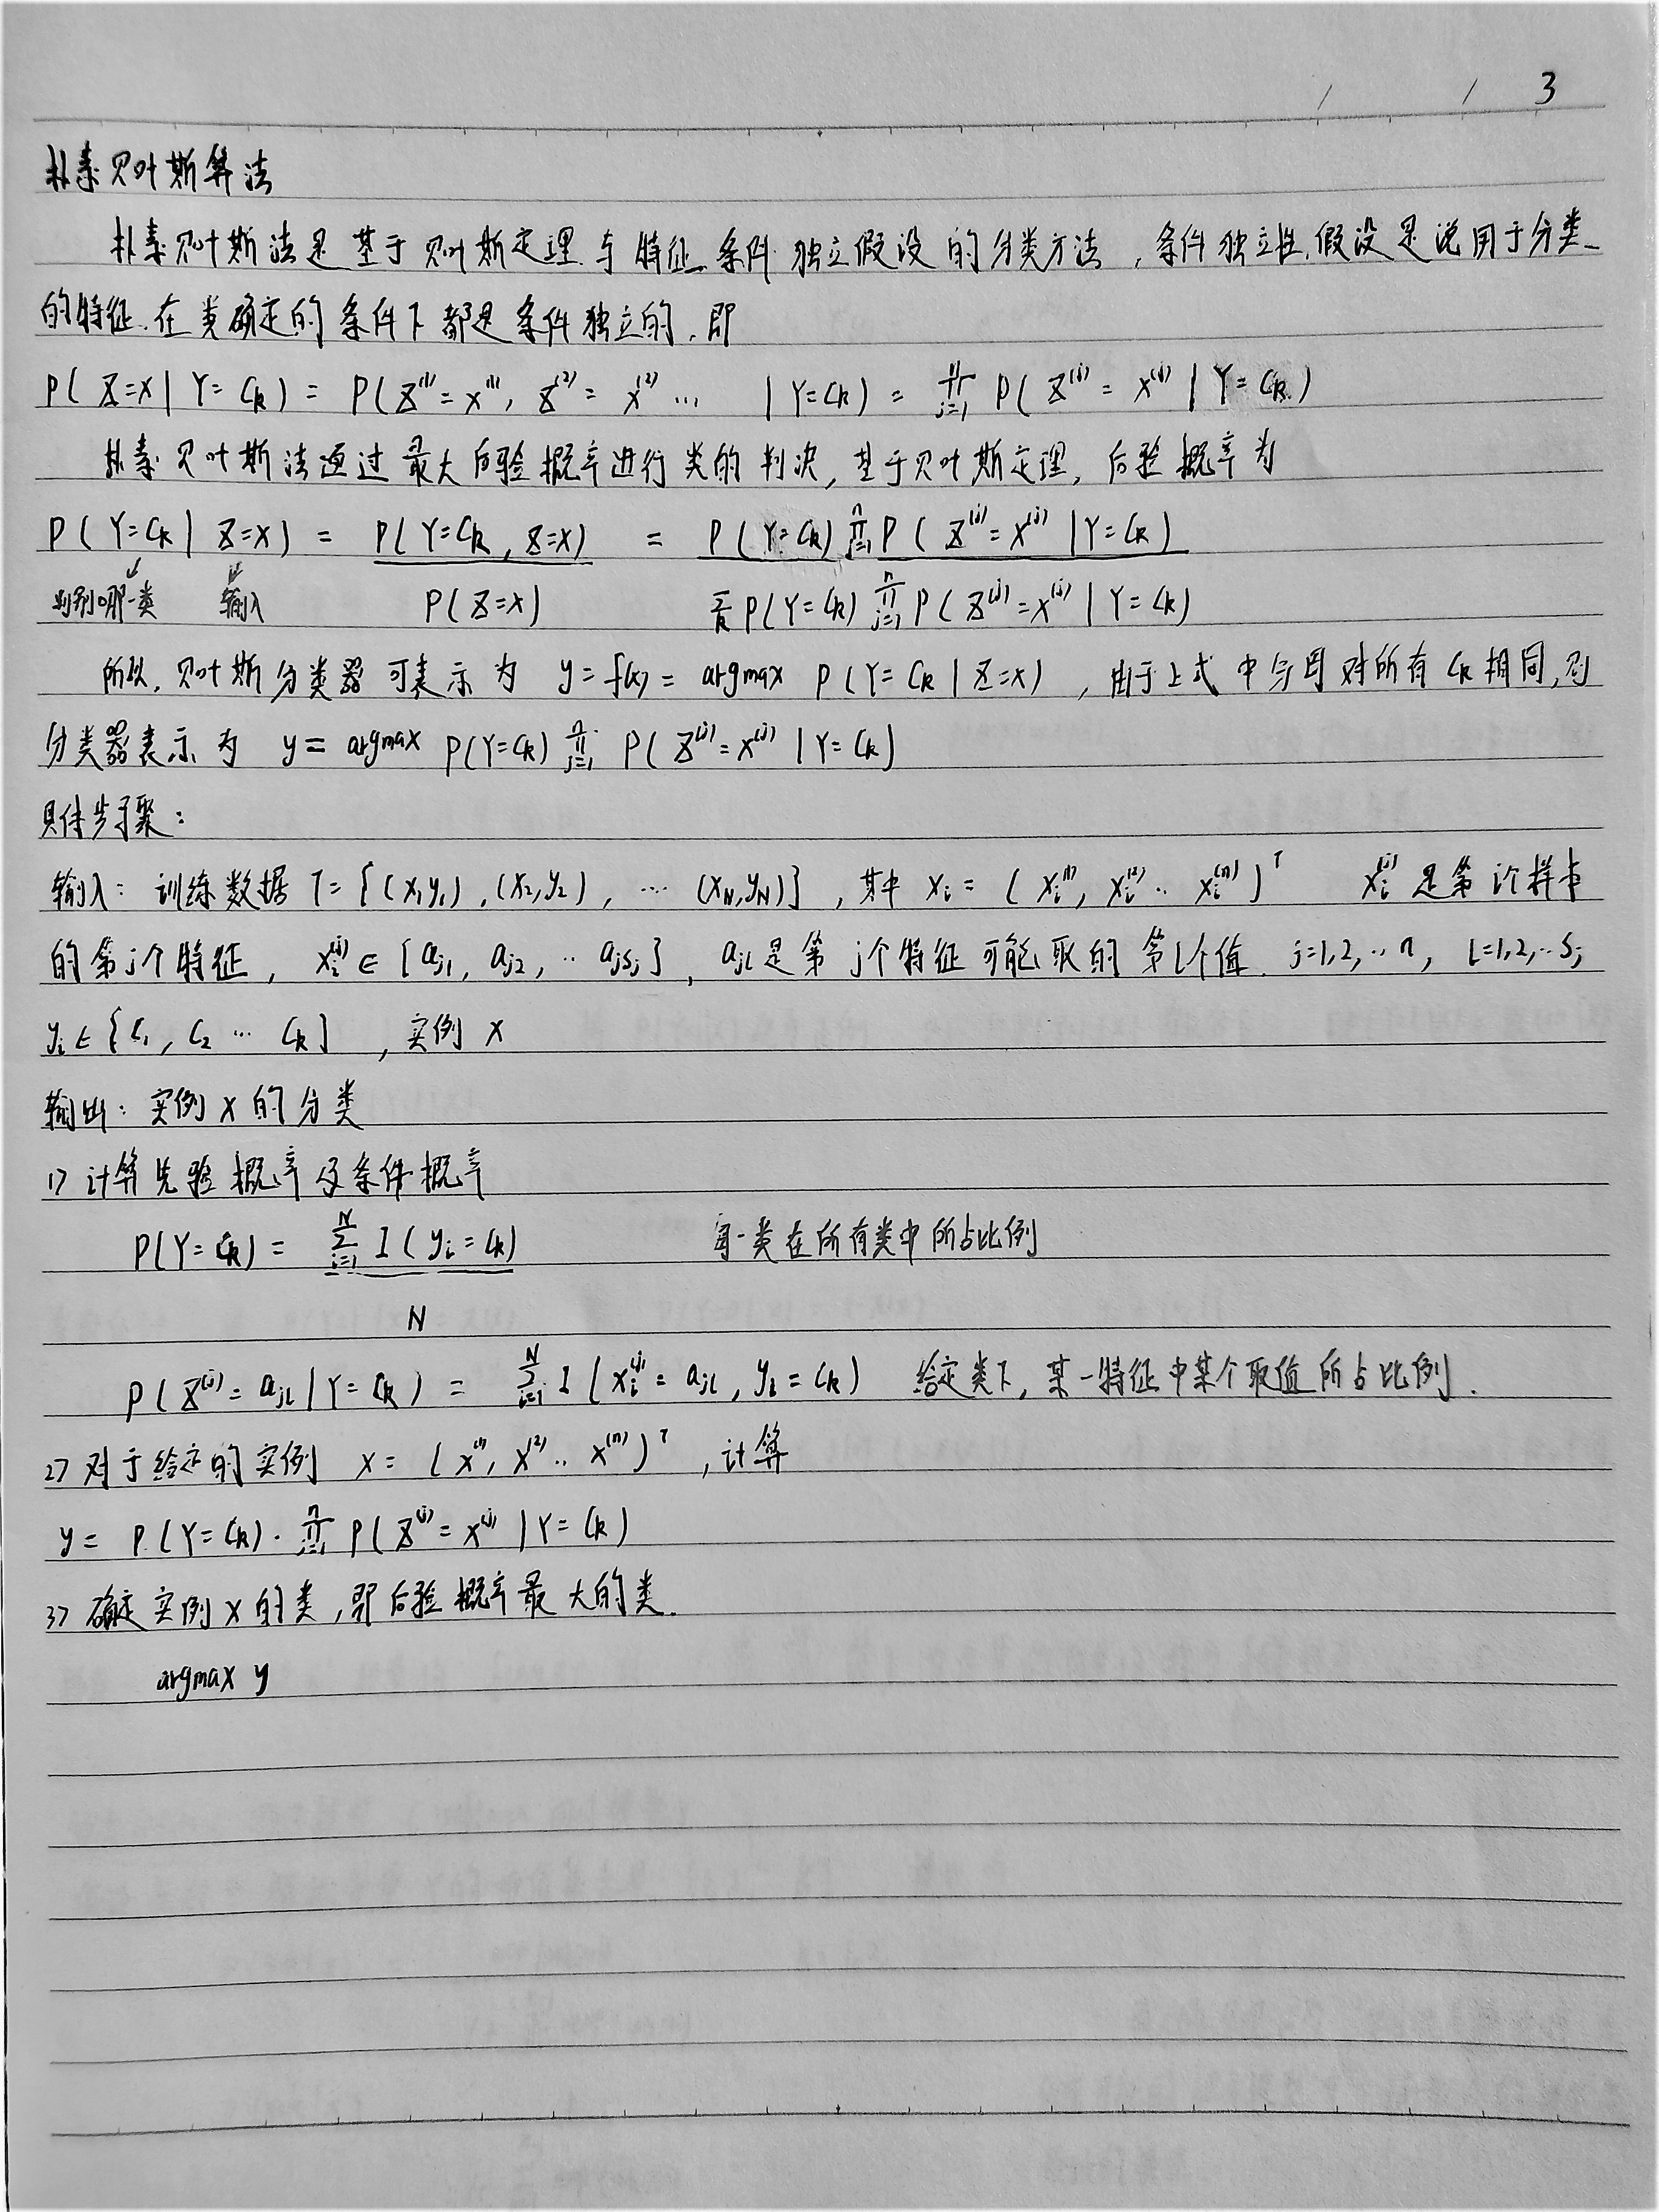 / / 3
朴素贝叶斯算法
朴素贝叶斯法是基于贝叶斯定理与特征条件独立假设的分类方法，条件独立性假设是说用于分类
的特征在类确定的条件下都是条件独立的.即
P(Z=x|Y=Ck) = P(Z^(1)=x^(1), Z^(2)=x^(2)... |Y=Ck) = ∏_{j=1}^n P(Z^(j)=x^(j)|Y=Ck)
朴素贝叶斯法通过最大后验概率进行类的判决，基于贝叶斯定理，后验概率为
P(Y=Ck|Z=x) = P(Y=Ck, Z=x) = P(Y=Ck) ∏_{j=1}^n P(Z^(j)=x^(j)|Y=Ck)
判别哪一类 输入 P(Z=x) Σ_k P(Y=Ck) ∏_{j=1}^n P(Z^(j)=x^(j)|Y=Ck)
所以，贝叶斯分类器可表示为 y=f(x)= argmax P(Y=Ck|Z=x)，由于上式中分母对所有Ck相同，则
分类器表示为 y= argmax P(Y=Ck) ∏_{j=1}^n P(Z^(j)=x^(j)|Y=Ck)
具体步骤：
输入：训练数据 T={(x1,y1),(x2,y2), ... (xN,yN)}，其中 xi=(xi^(1), xi^(2).. xi^(n))^T xi^(j)是第i个样本
的第j个特征，xi^(j)∈{aj1, aj2, .. ajSj}，ajl是第j个特征可能取的第l个值. j=1,2,..n, l=1,2,..Sj
yi∈{C1, C2 ... Ck}，实例x
输出：实例x的分类
1) 计算先验概率及条件概率
P(Y=Ck) = Σ_{i=1}^N I(yi=Ck) 每一类在所有类中所占比例
N
P(Z^(j)=ajl|Y=Ck) = Σ_{i=1}^N I(xi^(j)=ajl, yi=Ck) 给定类下，某一特征中某个取值所占比例.
2) 对于给定的实例 x=(x^(1), x^(2).. x^(n))^T，计算
y= P(Y=Ck)· ∏_{j=1}^n P(Z^(j)=x^(j)|Y=Ck)
3) 确定实例x的类，即后验概率最大的类.
argmax y